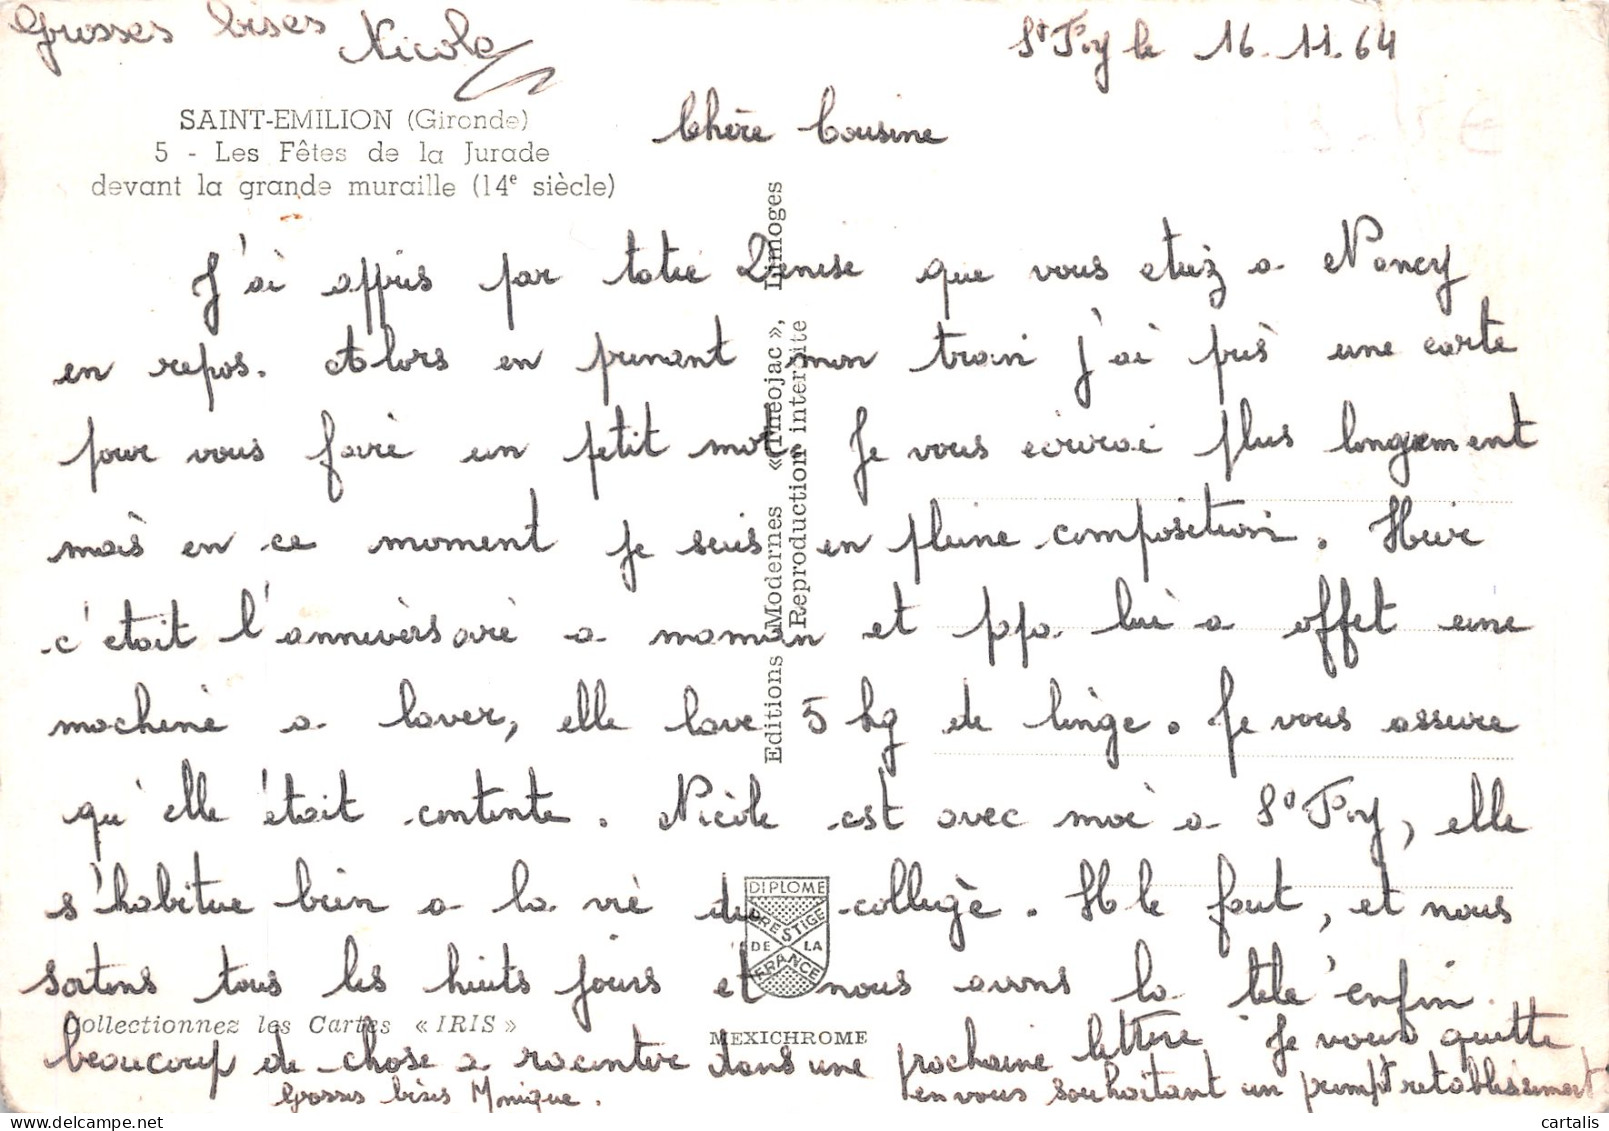 Grosses bises Nicole
St Foy le 16.11.64
SAINT-EMILION (Gironde)
5 - Les Fêtes de la Jurade
devant la grande muraille (14e siècle)
Chère Cousine
J'ai appris par tatie Denise que vous etiez a Nancy
en repos. Alors en prenant mon train j'ai pris une carte
pour vous faire un petit mot. Je vous ecrirai plus longement
mais en ce moment je suis en pleine composition. Heir
c'etait l'anniversaire a maman et papa lui a offet une
machine a laver, elle lave 5 kg de linge. Je vous assure
qu'elle était contente. Nicole est avec moi a St Foy, elle
s'habitue bien a la vie du college. Il le faut, et nous
sortons tous les huits jours et nous avons la télé enfin
beaucoup de chose a raconter dans une prochaine lettre. Je vous quitte
en vous souhaitant un prompt retablissement
Grosses bises Monique.
Editions Modernes « Théojac », Limoges
Reproduction interdite
DIPLOME
PRESTIGE
DE LA
FRANCE
Collectionnez les Cartes « IRIS »
MEXICHROME
cartalis